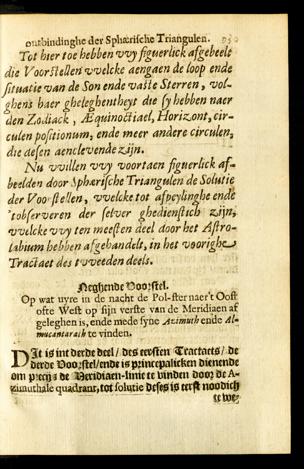 ontbindinghe der Sphærische Triangulen.
Tot hier toe hebben wy figuerlick afgebeelt
die Voorstellen vvelcke aengaen de loop ende
situatie van de Son ende vaste Sterren, vol-
ghens haer gheleghentheyt die sy hebben naer
den Zodiack, Æquinoctiael, Horizont, cir-
culen positionum, ende meer andere circulen,
die desen aenclevende zijn.
Nu vvillen vvy voortaen figuerlick af-
beelden door Sphærische Triangulen de Solutie
der Voorstellen, vvelcke tot afpeylinghe ende
'tobserveren der selver ghedienstich zijn,
vvelcke vvy ten meesten deel door het Astro-
labium hebben afghehandelt, in het voorighe
Tractaet des tvveeden deels.
Neghende Voorstel.
Op wat uyre in de nacht de Pol-ster naer't Oost
ofte West op sijn verste van de Meridiaen af
geleghen is, ende mede syne Azimuth ende Al-
mucantarath te vinden.
DIt is int derde deel / des eersten Tractaets / de
derde Voorstel/ende is principalicken dienende
om precijs de Meridiaen-linie te vinden door de A-
zimuthale quadrant, tot solutie deses is eerst noodich
te we-